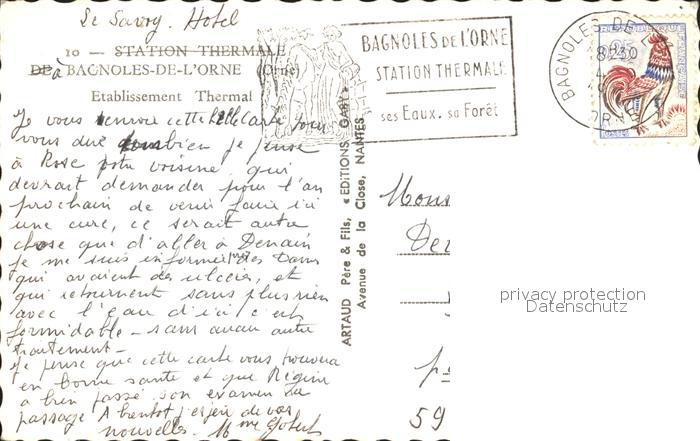 Le Savoy. Hotel
10 — STATION THERMALE
DE à BAGNOLES-DE-L'ORNE (Orne)
Etablissement Thermal
BAGNOLES DE L'ORNE
STATION THERMALE
ses Eaux. sa Forêt
BAGNOLES DE
ORNE
Je vous envoie cette belle carte pour
vous dire combien je pense
à Rose votre voisine qui
devrait demander pour l'an
prochain de venir faire ici
une cure, ce serait autre
chose que d'aller à Denain
je me suis informée des Dames
qui avaient des ulcères, et
qui retournent sans plus rien
avec l'eau d'ici c'est
formidable - sans aucun autre
traitement -
Je pense que cette carte vous trouvera
en bonne santé et que Régine
a bien passé son examen de
passage A bientôt j'espère de vos
nouvelles. Mme
ARTAUD Père & Fils, « EDITIONS GABY »
Avenue de la Close, NANTES
Mons
Der
59
privacy protection
Datenschutz